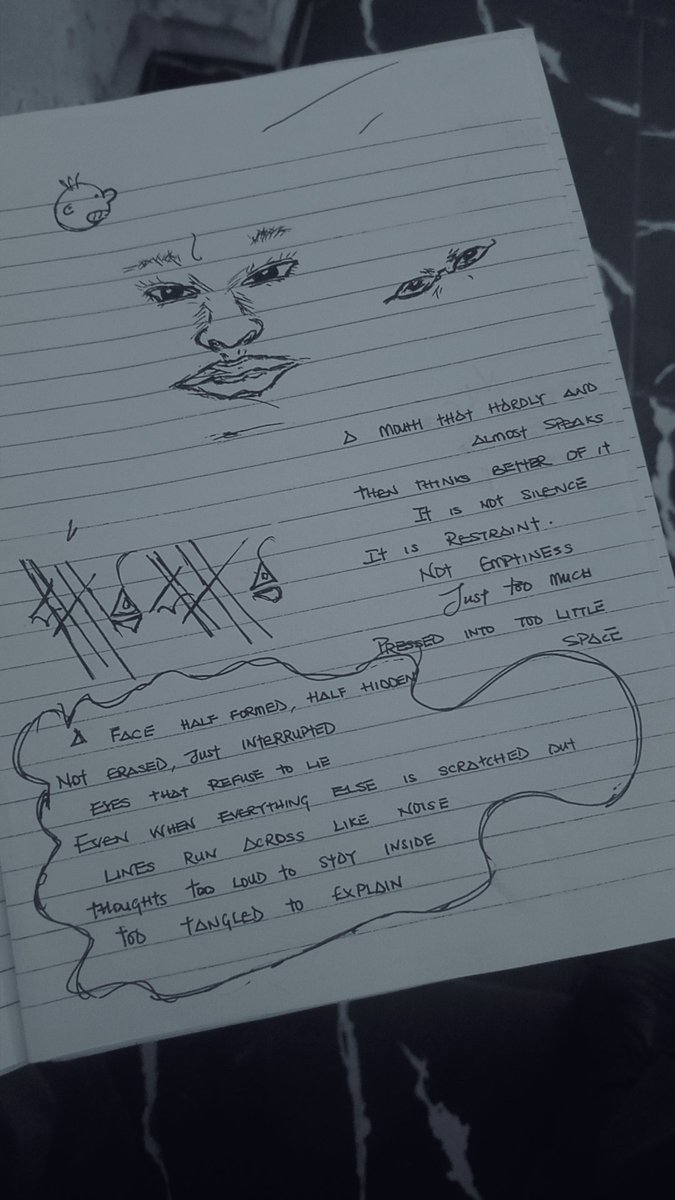 A MOUTH THAT HARDLY AND
ALMOST SPEAKS
THEN THINKS BETTER OF IT
IT IS NOT SILENCE
IT IS RESTRAINT.
NOT EMPTINESS
JUST TOO MUCH
PRESSED INTO TOO LITTLE
SPACE
A FACE HALF FORMED, HALF HIDDEN
NOT ERASED, JUST INTERRUPTED
EYES THAT REFUSE TO LIE
EVEN WHEN EVERYTHING ELSE IS SCRATCHED OUT
LINES RUN ACROSS LIKE NOISE
THOUGHTS TOO LOUD TO STAY INSIDE
TOO TANGLED TO EXPLAIN